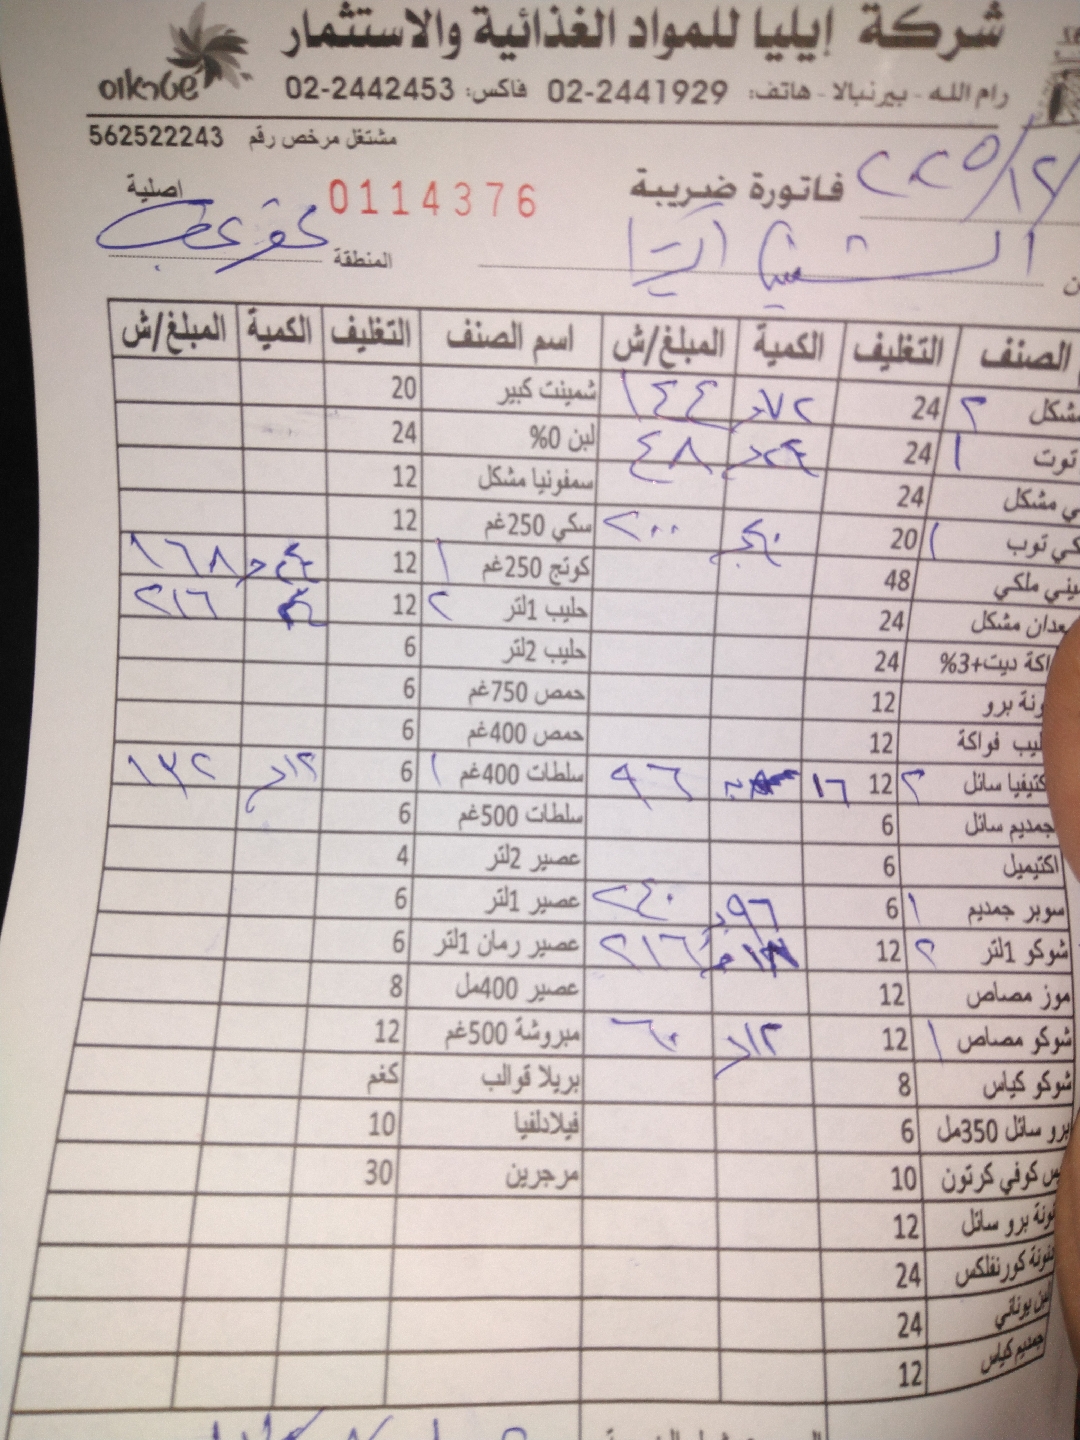 شركة إيليا للمواد الغذائية والاستثمار
رام الله - بيرنبالا - هاتف: 02-2441929 فاكس: 02-2442453
مشتغل مرخص رقم 562522243
فاتورة ضريبة 0114376 اصلية
٢٠٢٥/١٢/
المنطقة كفر عقب
الصنف التغليف الكمية المبلغ/ش اسم الصنف التغليف الكمية المبلغ/ش
مشكل ٣ 24 ٧٢ ١٤٤ شمينت كبير 20
توت ١ 24 ٢٤ ٤٨ لبن 0% 24
مشكل 24 سمفونيا مشكل 12
توب ١ 20 ٢٠٠ سكي 250غم 12
ملكي 48 كوتج 250غم ١ 12 ١٦٨
مشكل 24 حليب 1لتر ٢ 12 ٢١٦
ديت+3% 24 حليب 2لتر 6
برو 12 حمص 750غم 6
فواكة 12 حمص 400غم 6
سائل ٣ 12 ١٦ ٩٦ سلطات 400غم ١ 6 ١٢ ١٣٢
جمديم سائل 6 سلطات 500غم 6
اكتيميل 6 عصير 2لتر 4
سوبر جمديم ١ 6 ٩٦ ٢٤٠ عصير 1لتر 6
شوكو 1لتر ٢ 12 ٢١٦ عصير رمان 1لتر 6
موز مصاص 12 عصير 400مل 8
شوكو مصاص ١ 12 ١٢ ٦٠ مبروشة 500غم 12
شوكو كياس 8 بريلا قوالب كغم
برو سائل 350مل 6 فيلادلفيا 10
كوفي كرتون 10 مرجرين 30
برو سائل 12
كورنفلكس 24
يوناني 24
جمديم كياس 12